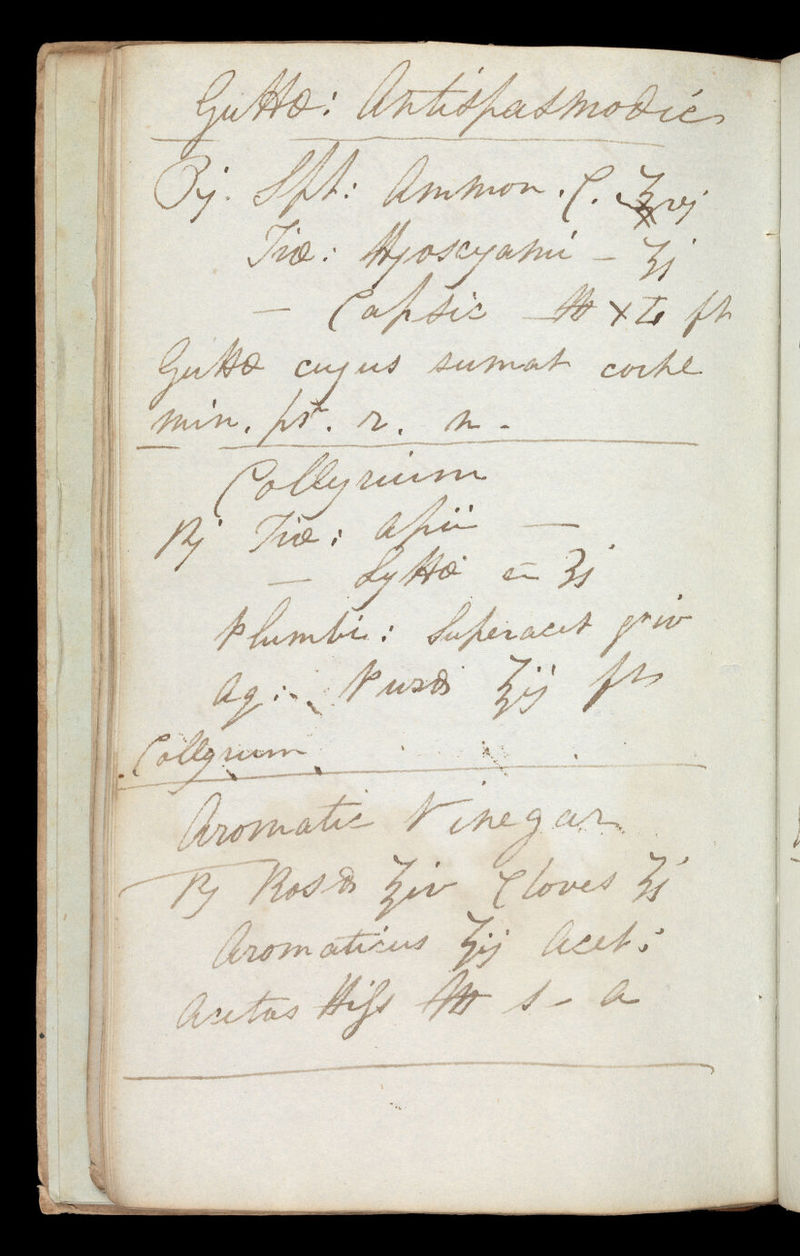 Guttæ: Antispasmodic
℞. Spt: Ammon. C. ʒvj
Tiæ: Hyoscyami — ʒj
— Capsic ♏ xl ft
Guttæ cujus sumat cochl
min. pr. r. n.
Collyrium
℞ Tiæ: Apii —
— Lyttæ āā ʒj
Plumbi: Superacet gr iv
Aq: Puræ ℥ij ft
Collyrium
Aromatic Vinegar
℞ Rosæ ℥iv Cloves ℥j
Aromaticus ℥ij Acet:
Acetas ♏ s - a